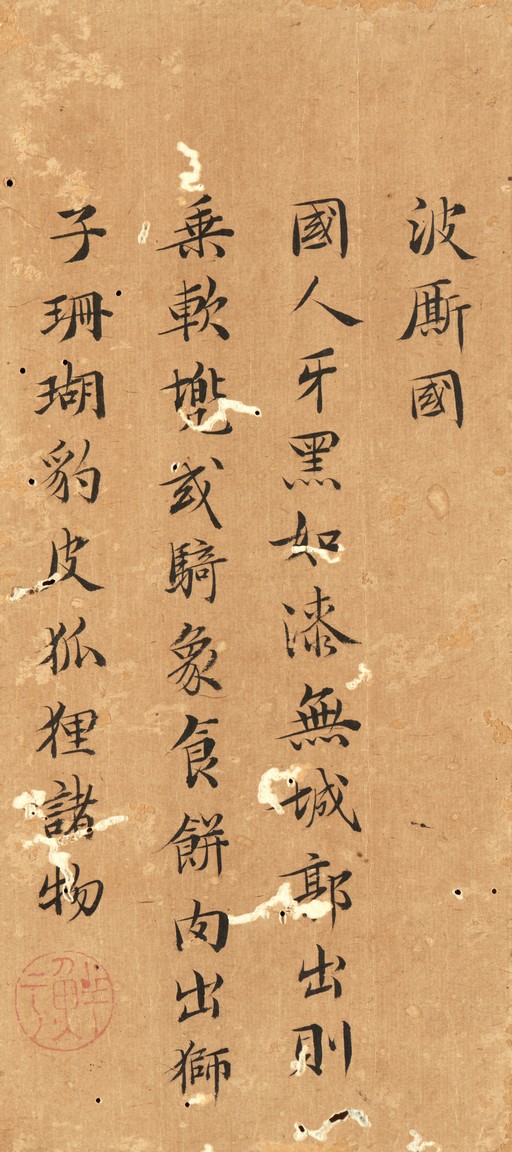 波厮國
國人牙黑如漆無城郭出則
乗軟兠或騎象食餅肉出獅
子珊瑚豹皮狐狸諸物